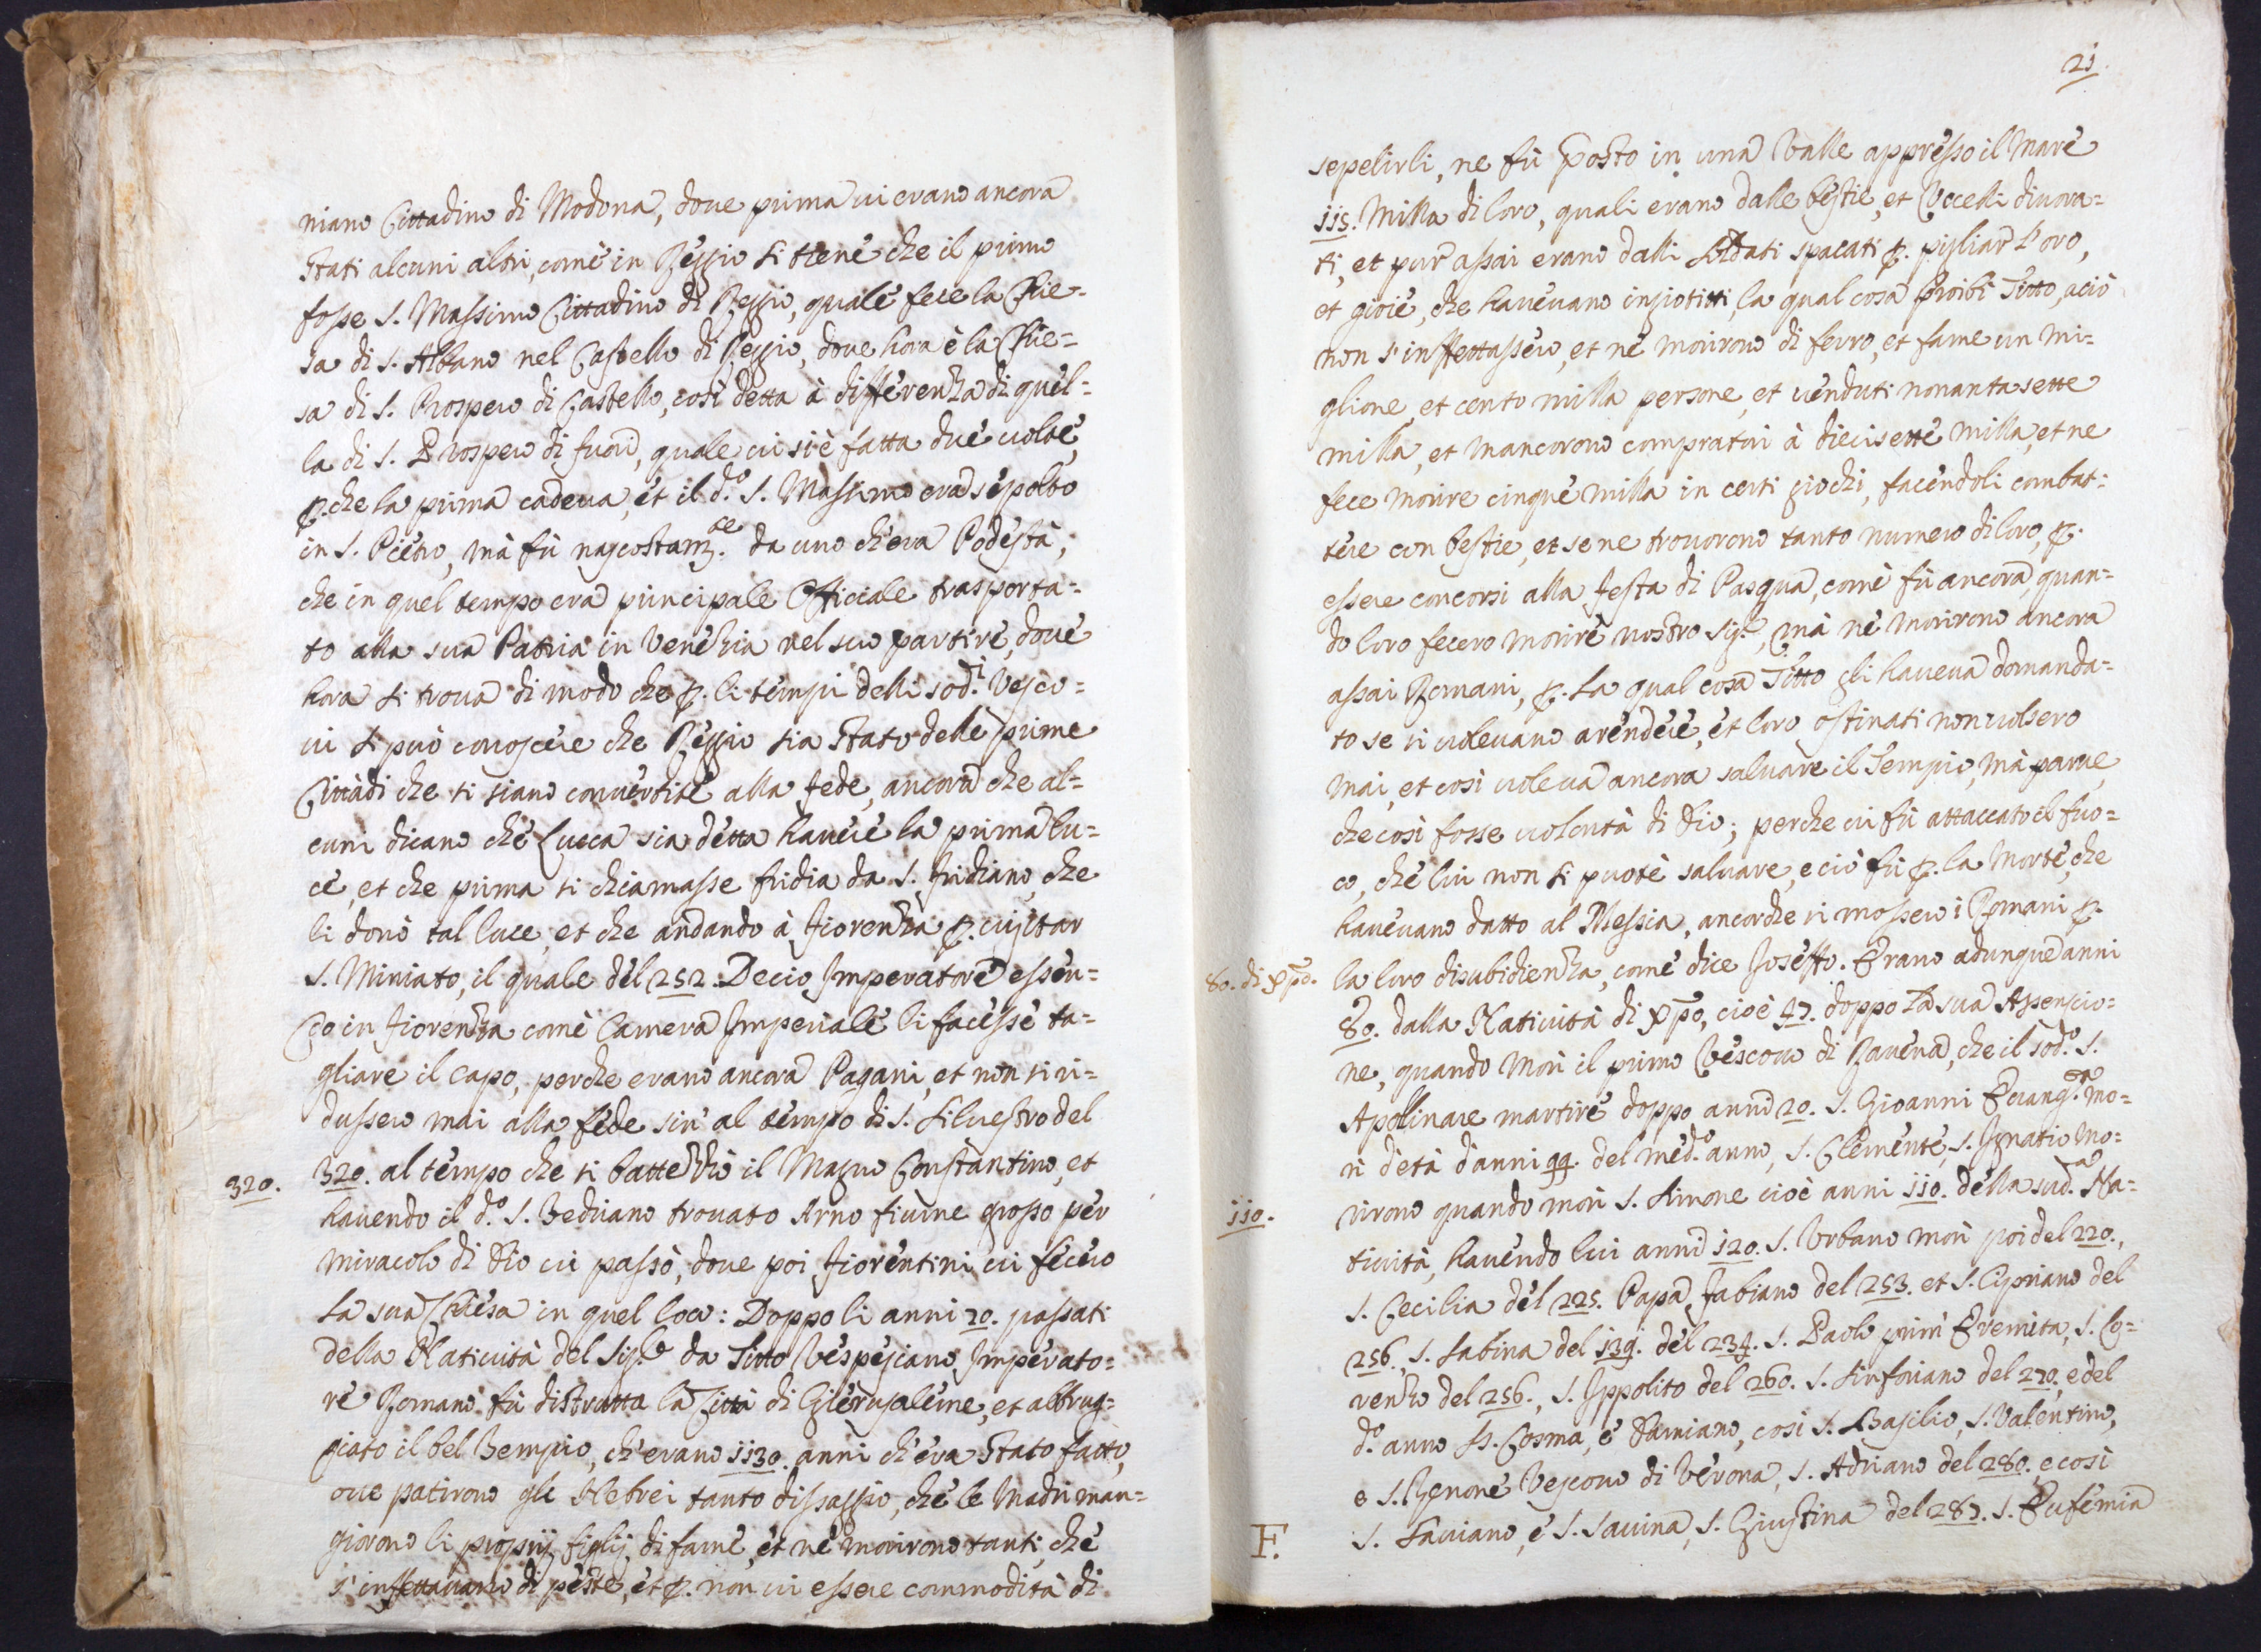 niano Cittadino di Modona, doue prima ui erano ancora
stati alcuni altri, come in Reggio si tiene che il primo
fosse S. Massimo Cittadino di Reggio, quale fece la Chie-
sa di S. Albano nel Castello di Reggio, doue hora è la Chie=
sa di S. Prospero di Castello, così detta à differenza di quel=
la di S. Prospero di fuori, quale ui si è fatta due uolte,
p. che la prima cadeua, et il d.º S. Massimo era sepolto
in S. Pietro, mà fù nascostam.te da uno ch'era Podestà,
che in quel tempo era principale Officiale trasporta=
to alla sua Patria in Venezia nel suo partire, doue
hora si troua di modo che p. li tempi delli sod.i Vesco=
ui si può conoscere che Reggio sia stato delle prime
Cittàdi che si siano conuertite alla fede, ancora che al=
cuni dicano che Lucca sia detta hauere la prima lu=
ce, et che prima si chiamasse fridia da S. fridiano, che
li donò tal luce, et che andando à Fiorenza p. uisitar
S. Miniato, il quale del 252. Decio Imperatore essen=
do in Fiorenza come Camera Imperiale li facesse ta=
gliare il capo, perche erano ancora Pagani, et non si ri=
dussero mai alla fede sin' al tempo di S. Siluestro del
320.
320. al tempo che si battezzò il Magno Constantino, et
hauendo il d.º S. Bediano trouato Arno fiume grosso per
miracolo di Dio ui passò, doue poi Fiorentini ui fecero
la sua Chiesa in quel loco: Doppo li anni 70. passati
della Natiuità del Sig.re da Titto Vespesiano Imperato=
re Romano fù distrutta la Città di Gierusaleme, et abbrug=
giato il bel Tempio, ch' erano 1130. anni ch' era stato fatto,
oue patirono gli Hebrei tanto dissaggio, che le Madri man=
giorono li proprij figlij di fame, et ne morirono tanti, che
s' infettauano di peste, et p. non ui essere commodità di
21.
sepelirli, ne fù posto in una Valle appresso il Mare
115. Milla di loro, quali erano dalle bestie, et Vccelli diuora=
ti, et pur assai erano dalli soldati spacati p. pigliar l'oro,
et gioie, che haueuano ingiotitti, la qual cosa proibì Titto, aciò
non s' inffettassero, et ne morirono di ferro, et fame un mi=
glione, et cento milla persone, et uenduti nonanta sette
milla, et mancorono compratori à diecisette milla, et ne
fece morire cinque milla in certi giochi, facendoli combat=
tere con bestie, et se ne trouorono tanto numero di loro, p.
essere concorsi alla festa di Pasqua, come fù ancora, quan=
do loro fecero morire nostro Sig.re, mà ne morirono ancora
assai Romani, p. la qual cosa Titto gli haueua domanda=
to se si uoleuano arendere, et loro ostinati non uolsero
mai, et così uoleua ancora saluare il Tempio, mà parue,
che così fosse uolontà di Dio; perche ui fù attaccato il fuo=
co, che lui non si puotè saluare, e ciò fù p. la Morte, che
haueuano datto al Messia, ancorche si mossero i Romani p.
80. di Xpo.
la loro disubidienza, come dice Joseffo. Erano adunque anni
80. dalla Natiuità di Xpo, cioè 47. doppo la sua Assensio=
ne, quando morì il primo Vescouo di Rauena, che il sod.º S.
Apollinare martire doppo anni 20. S. Gioanni Euang.ta mo=
rì d'età d'anni 99. del med.º anno, S. Clemente, S. Ignatio mo=
110.
rirono quando morì S. Simone cioè anni 110. della sud.a Na=
tiuità, hauendo lui anni 120. S. Vrbano morì poi del 220.,
S. Cecilia del 225. Papa Fabiano del 253. et S. Cipriano del
256., S. Sabina del 139. del 234. S. Paolo prim' Eremita, S. Lo=
renzo del 256., S. Ippolito del 260. S. Sinforiano del 270., e del
d.º anno SS. Cosma, e Damiano, così S. Basilio, S. Valentino,
e S. Zenone Vescouo di Verona, S. Adriano del 280., e così
F.
S. Sauiano, e S. Sauina, S. Giustina del 287. S. Eufemia